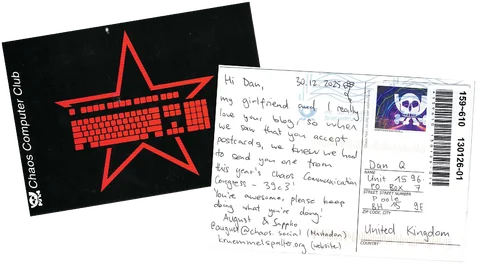 Chaos Computer Club
Hi Dan, 30.12.2025
my girlfriend and I really
love your blog, so when
we saw that you accept
postcards, we knew we had
to send you one from
this year's Chaos Communication
Congress - 39c3!
You're awesome, please keep
doing what you're doing!
August & Sappho
@august@chaos.social (Mastodon)
kruemmelspalter.org (website)
159-610 130126-01
Dan Q
NAME
Unit 1596
PO BOX 7
STREET, STREET NUMBER
Poole
BH15 9E
ZIP CODE, CITY
United Kingdom
COUNTRY